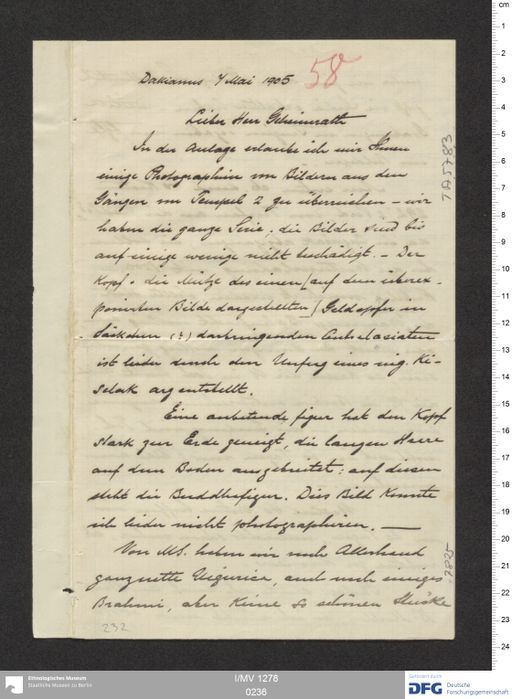 Dakianus 7 Mai 1905
58
Lieber Herr Geheimrath
In der Anlage erlaube ich mir Ihnen
einige Photographien von Bildern aus den
Gängen von Tempel 2 zu überreichen – wir
haben die ganze Serie; die Bilder sind bis
auf einige wenige nicht beschädigt. – Der
Kopf u. die Mütze des einen [auf dem überex-
ponirten Bilde dargestellten] Geldopfer in
Säckchen (?) darbringenden
ist leider durch den Unfug eines nig. Ki-
selak arg entstellt.
Eine anbetende Figur hat den Kopf
stark zur Erde geneigt, die langen Haare
auf dem Boden ausgebreitet: auf diesen
steht die Buddhafigur. Dies Bild konnte
ich leider nicht photographiren. —
Von MS. haben wir noch Allerhand
ganz nette Uigurica, auch noch einiges
Brahmi, aber keine so schönen Stücke
232
TA 5783
7825
Ethnologisches Museum
Staatliche Museen zu Berlin
I/MV 1278
0236
Gefördert durch
DFG Deutsche
Forschungsgemeinschaft
cm
1
2
3
4
5
6
7
8
9
10
11
12
13
14
15
16
17
18
19
20
21
22
23
24